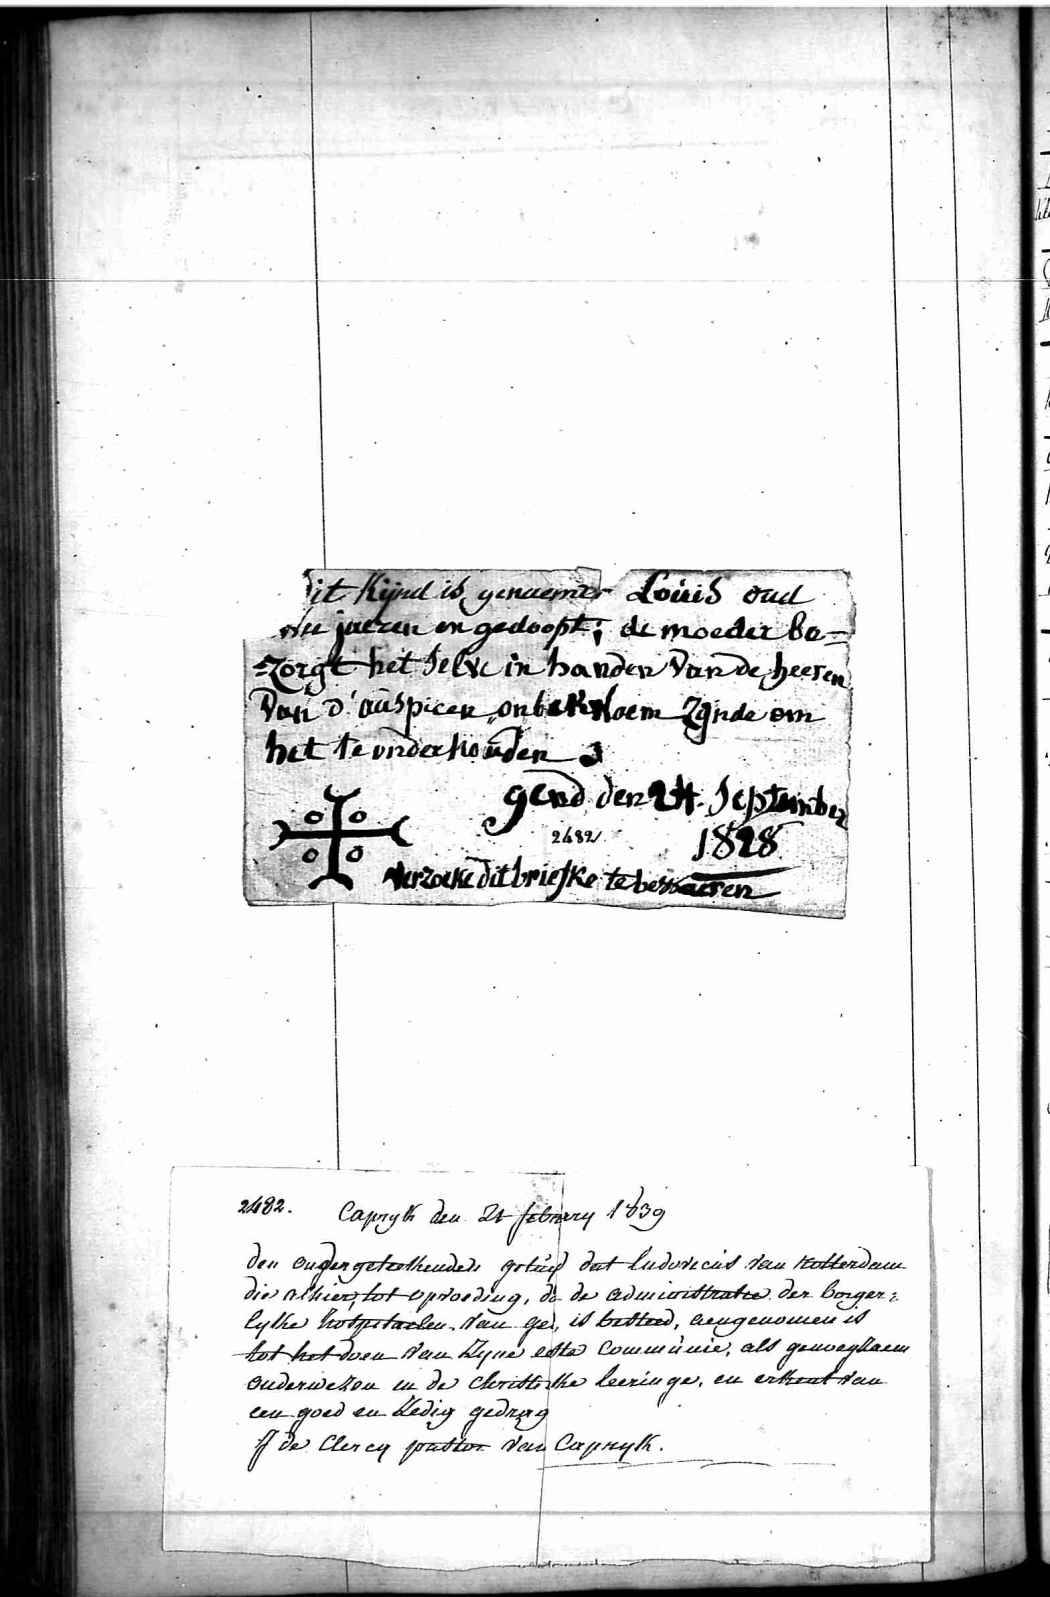 it Kijnd is genaemer Louis oud
jaeren en gedoopt; de moeder be=
=zorgt het selve in handen van de heeren
van d'auspicen onbekwaem zynde om
het te onderhouden
gend den 24 September
2482 1828
verzoeke dit briefke te bewaeren
2482. Capryk den 21 febrary 1839
den ondergeteekenden getuigt dat Ludovicus van Rotterdam
die alhier, tot opvoeding, de administratie der borger:
lyke van is besteed, aengenomen is
tot het doen van zyne eerste Communie, als genoegzaem
onderwezen in de christelyke leeringe, en erkent van
een goed en zedig gedrag
J de Clercq pastor van Capryk.